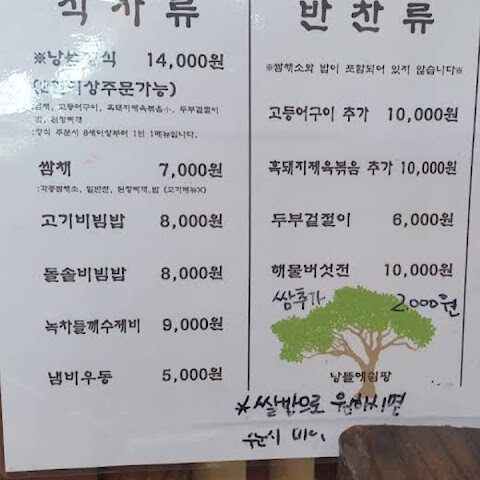 식사류
※낭뜰정식 14,000원
(2인이상주문가능)
:쌈채, 고등어구이, 흑돼지제육볶음小, 두부겉절이
밥, 된장찌개
:정식 주문시 8세이상부터 1인 1메뉴입니다.
쌈채 7,000원
:각종쌈채소, 밑반찬, 된장찌개,밥 (고기메뉴X)
고기비빔밥 8,000원
돌솥비빔밥 8,000원
녹차들깨수제비 9,000원
냄비우동 5,000원
반찬류
※쌈채소와 밥이 포함되어 있지 않습니다※
고등어구이 추가 10,000원
흑돼지제육볶음 추가 10,000원
두부겉절이 6,000원
해물버섯전 10,000원
쌈추가 2,000원
낭뜰에쉼팡
*쌀밥으로 원하시면
주문시 미리